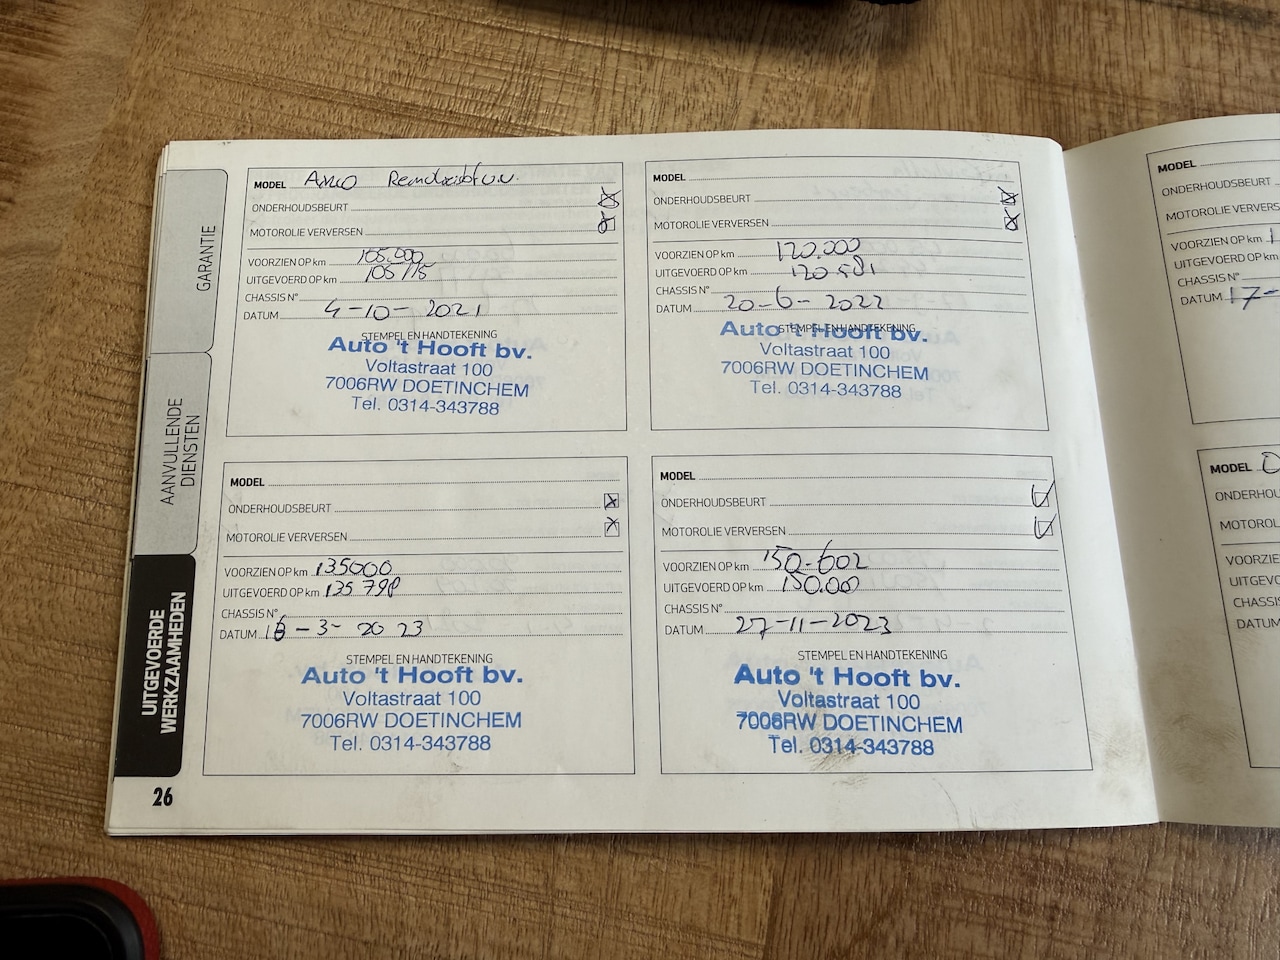 GARANTIE
AANVULLENDE
DIENSTEN
UITGEVOERDE
WERKZAAMHEDEN
26
MODEL
ONDERHOUDSBEURT
MOTOROLIE VERVERSEN
VOORZIEN OP km 105.000
UITGEVOERD OP km 105115
CHASSIS N°
DATUM 4-10-2021
STEMPEL EN HANDTEKENING
Auto 't Hooft bv.
Voltastraat 100
7006RW DOETINCHEM
Tel. 0314-343788
MODEL
ONDERHOUDSBEURT
MOTOROLIE VERVERSEN
VOORZIEN OP km 120.000
UITGEVOERD OP km
CHASSIS N°
DATUM 20-6-2022
STEMPEL EN HANDTEKENING
Auto 't Hooft bv.
Voltastraat 100
7006RW DOETINCHEM
Tel. 0314-343788
MODEL
ONDERHOUDSBEURT
MOTOROLIE VERVERSEN
VOORZIEN OP km 135000
UITGEVOERD OP km 135798
CHASSIS N°
DATUM 16-3-2023
STEMPEL EN HANDTEKENING
Auto 't Hooft bv.
Voltastraat 100
7006RW DOETINCHEM
Tel. 0314-343788
MODEL
ONDERHOUDSBEURT
MOTOROLIE VERVERSEN
VOORZIEN OP km 150-602
UITGEVOERD OP km 150.00
CHASSIS N°
DATUM 27-11-2023
STEMPEL EN HANDTEKENING
Auto 't Hooft bv.
Voltastraat 100
7006RW DOETINCHEM
Tel. 0314-343788
MODEL
ONDERHOUDSBEURT
MOTOROLIE VERVERS
VOORZIEN OP km 1
UITGEVOERD OP km
CHASSIS N°
DATUM 17-
MODEL
ONDERHOU
MOTOROL
VOORZIE
UITGEVO
CHASSI
DATUM